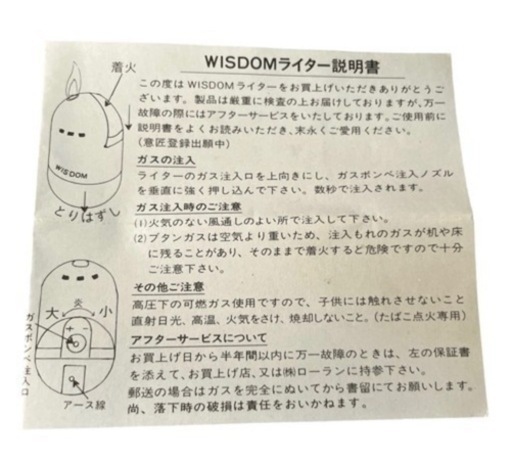 WISDOMライター説明書
着火
この度はWISDOMライターをお買上げいただきありがとうご
ざいます。製品は厳重に検査の上お届けしておりますが、万一
故障の際にはアフターサービスをいたしております。ご使用前に
説明書をよくお読みいただき、末永くご愛用ください。
(意匠登録出願中)
WISDOM
とりはずし
ガスの注入
ライターのガス注入口を上向きにし、ガスボンベ注入ノズル
を垂直に強く押し込んで下さい。数秒で注入されます。
ガス注入時のご注意
(1)火気のない風通しのよい所で注入して下さい。
(2)ブタンガスは空気より重いため、注入もれのガスが机や床
に残ることがあり、そのままで着火すると危険ですので十分
ご注意下さい。
その他ご注意
高圧下の可燃ガス使用ですので、子供には触れさせないこと
直射日光、高温、火気をさけ、焼却しないこと。(たばこ点火専用)
大 炎 小
+ -
ガスボンベ注入口
アース線
アフターサービスについて
お買上げ日から半年間以内に万一故障のときは、左の保証書
を添えて、お買上げ店、又は㈱ローランに持参下さい。
郵送の場合はガスを完全にぬいてから書留にてお願いします。
尚、落下時の破損は責任をおいかねます。